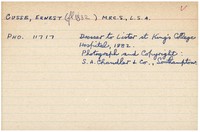 GUSSE, ERNEST (fl 1882) M.R.C.S., L.S.A.
PHO. 11717 Dresser to Lister at King's College
Hospital, 1882.
Photograph and Copyright
S.A. Chandler & Co., Southampton.